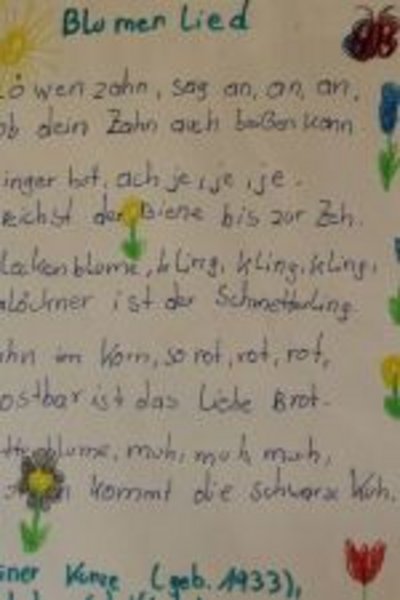 Blumen Lied
Löwenzahn, sag an, an, an,
ob dein Zahn auch beißen kann
inger hut, ach je, je, je.
reichst der Biene bis zur Zeh.
lockenblume, kling, kling, kling,
löckner ist der Schmetterling.
ahn im Korn, so rot, rot, rot,
ostbar ist das liebe Brot.
blume, muh, muh, muh,
kommt die schwarze Kuh.
iner Kunze (geb. 1933),